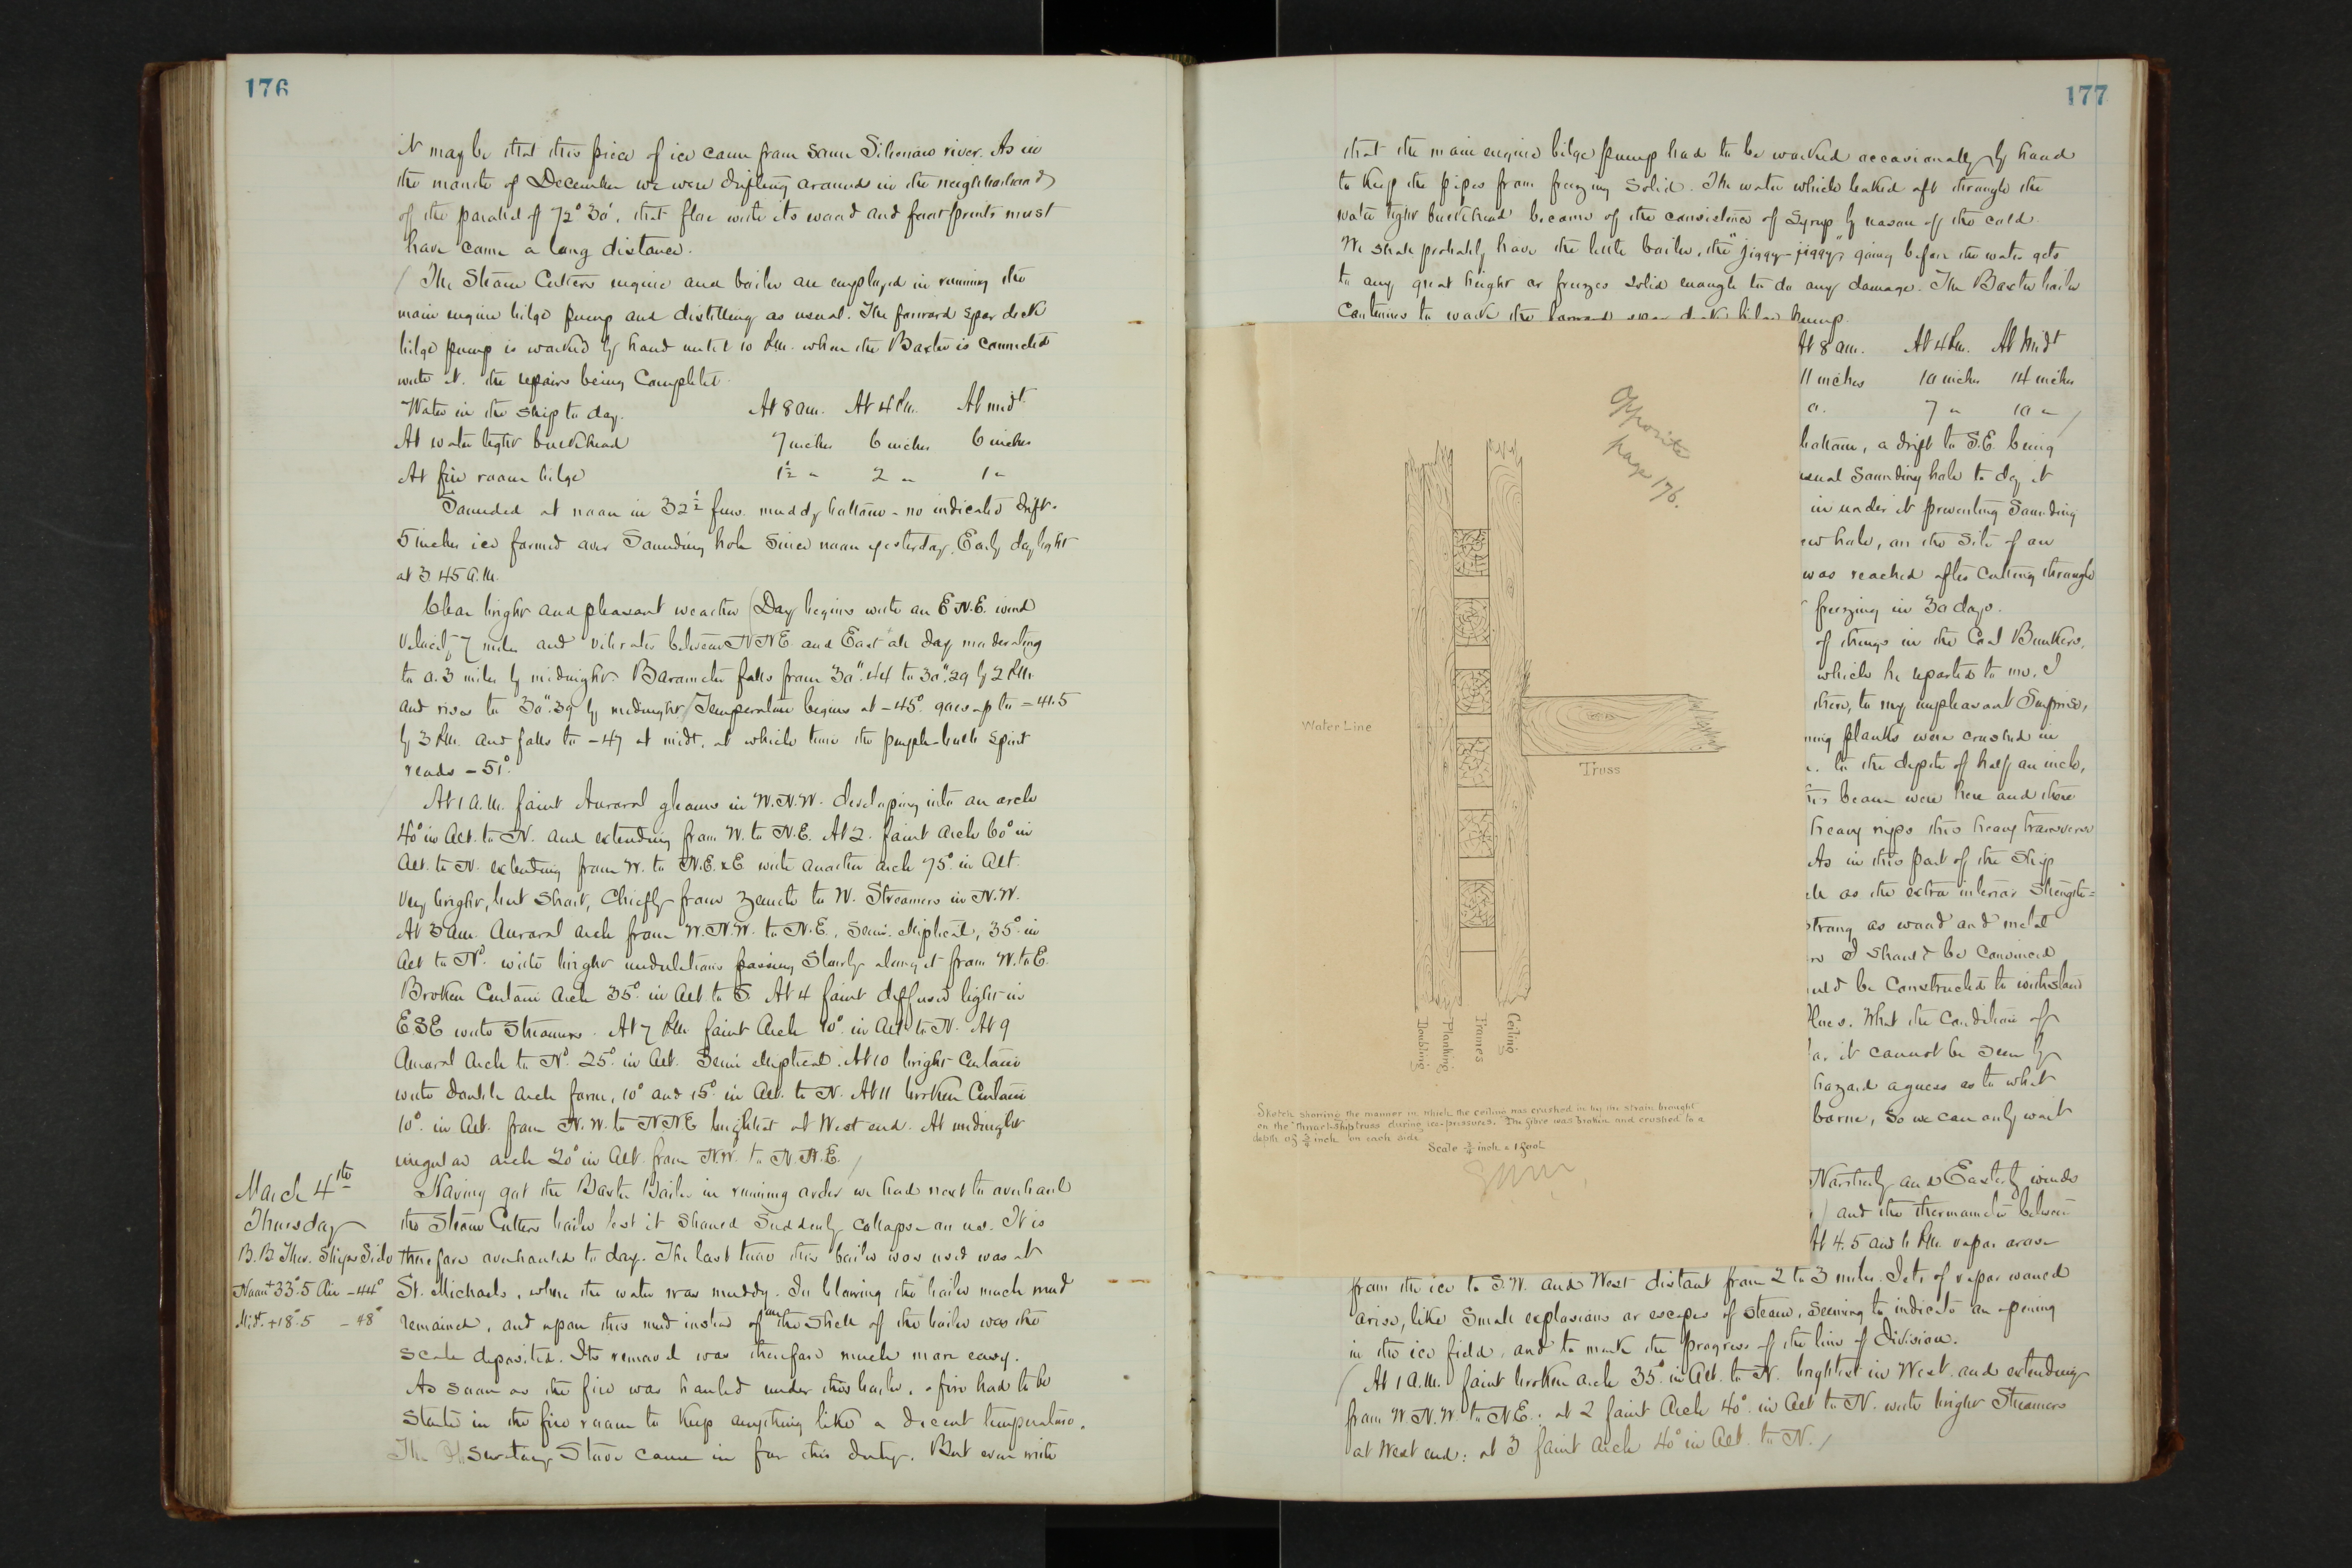 176
it may be that this piece of ice came from some Siberian river. As in
the month of December we were drifting around in the neighborhood
of the parallel of 72° 30', that floe with its wood and foot prints must
have come a long distance.
The Steam Cutters engine and boiler are employed in running the
main engine bilge pump and distilling as usual. The forward spar deck
bilge pump is worked by hand until 10 P.M. when the Baxter is connected
with it. the repairs being complete.
Water in the ship to day. At 8 am. At 4 P.M. At midt
At water tight bulkhead 7 inches 6 inches 6 inches
At fire room bilge 1½ " 2 " 1 "
Sounded at noon in 32½ fms. muddy bottom - no indicated drift.
5 inches ice formed over Sounding hole since noon yesterday. Early daylight
at 3.45 A.M.
Clear bright and pleasant weather (Day begins with an E.N.E. wind
Velocity 7 miles and vibrates between NNE and East all day moderating
to 0.3 miles by midnight. Barometer falls from 30".44 to 30".29 by 2 P.M.
and rises to 30".39 by midnight / Temperature begins at -45° goes up to -41.5
by 3 P.M. and falls to -47 at midt, at which time the purple-bulb spirit
reads -51°.
At 1 A.M. faint Auroral gleams in W.N.W. developing into an arch
40° in Alt. to N. and extending from W. to N.E. At 2. faint arch 60° in
Alt. to N. extending from W. to N.E.xE with another arch 75° in Alt.
Very bright, but short, Chiefly from Zenith to W. Streamers in N.W.
At 3 am. Auroral arch from W.N.W. to N.E., semi-eliptical, 35° in
Alt to Nd. with bright undulations passing slowly along it from W. to E.
Broken Curtain Arch 35° in Alt to S. At 4 faint diffused light in
ESE with Streamers. At 7 P.M. faint Arch 10° in Alt. to N. At 9
Auroral Arch to Nd. 25° in Alt. Semi eliptical. At 10 bright Curtain
with double arch form, 10° and 15° in Alt. to N. At 11 broken Curtain
10° in Alt. from N.W. to NNE brightest at West end. At midnight
irregular arch 20° in Alt. from N.W. to N.N.E. /
March 4th
Thursday
B.B. Ther. Ships Side
Noon +33°.5 Air -44°
Midt. +18°.5 -48°
Having got the Baxter Boiler in running order we had next to overhaul
the Steam Cutters boiler lest it should suddenly collapse on us. It is
therefore overhauled to day. The last time this boiler was used was at
St. Michaels, where the water was muddy. In blowing the boiler much mud
remained, and upon this mud instead of on the shell of the boiler was the
scale deposited. Its removal was therefore much more easy.
As soon as the fire was hauled under this boiler, a fire had to be
started in the fire room to keep anything like a decent temperature.
The Observatory Stove came in for this duty. But even with
177
that the main engine bilge pump had to be worked occasionally by hand
to keep the pipes from freezing solid. The water which leaked aft through the
water tight bulkhead became of the consistence of Syrup by reason of the cold.
We shall probably have the little boiler, the "jiggy-jiggy," going before the water gets
to any great height or freezes solid enough to do any damage. The Baxter boiler
Continues to work the forward spar deck bilge pump.
At 8 am. At 4 P.M. At Midt
11 inches 10 inches 14 inches
0. 7 " 10 " /
bottom, a drift to S.E. being
usual Sounding hole to day it
in under it preventing Sounding
ew hole, on the site of an
was reached after cutting through
freezing in 30 days.
of things in the Coal Bunkers,
which he reported to me. I
there, to my unpleasant Surprise,
ning planks were crushed in
to the depth of half an inch,
his beam were here and there
heavy nips this heavy transverse
As in this part of the Ship
ch as the extra interior Strength=
strong as wood and metal
I should be Convinced
uld be Constructed to withstand
floes. What the Condition of
it cannot be seen by
hazard a guess as to what
borne, so we can only wait
Northerly and Easterly winds
/ and the thermometer between
At 4.5 and 6 P.M. vapor arose
from the ice to S.W. and West distant from 2 to 3 miles. Jets of vapor would
arise, like small explosions or escapes of steam, seeming to indicate an opening
in the ice field, and to mark the progress of the line of Division.
(At 1 A.M. faint broken arch 35° in Alt. to N. brightest in West. and extending
from W.N.W. to N.E.; at 2 faint Arch 40° in Alt to N. with bright Streamers
at West end: at 3 faint Arch 40° in Alt. to N. /
Opposite
page 176.
Water Line
Truss
Doubling
Planking
Frames
Ceiling
Sketch showing the manner in which the ceiling was crushed in by the strain brought
on the "thwart-ship truss during ice-pressures. The fibre was broken and crushed to a
depth of ¾ inch on each side
Scale ¾ inch = 1 foot